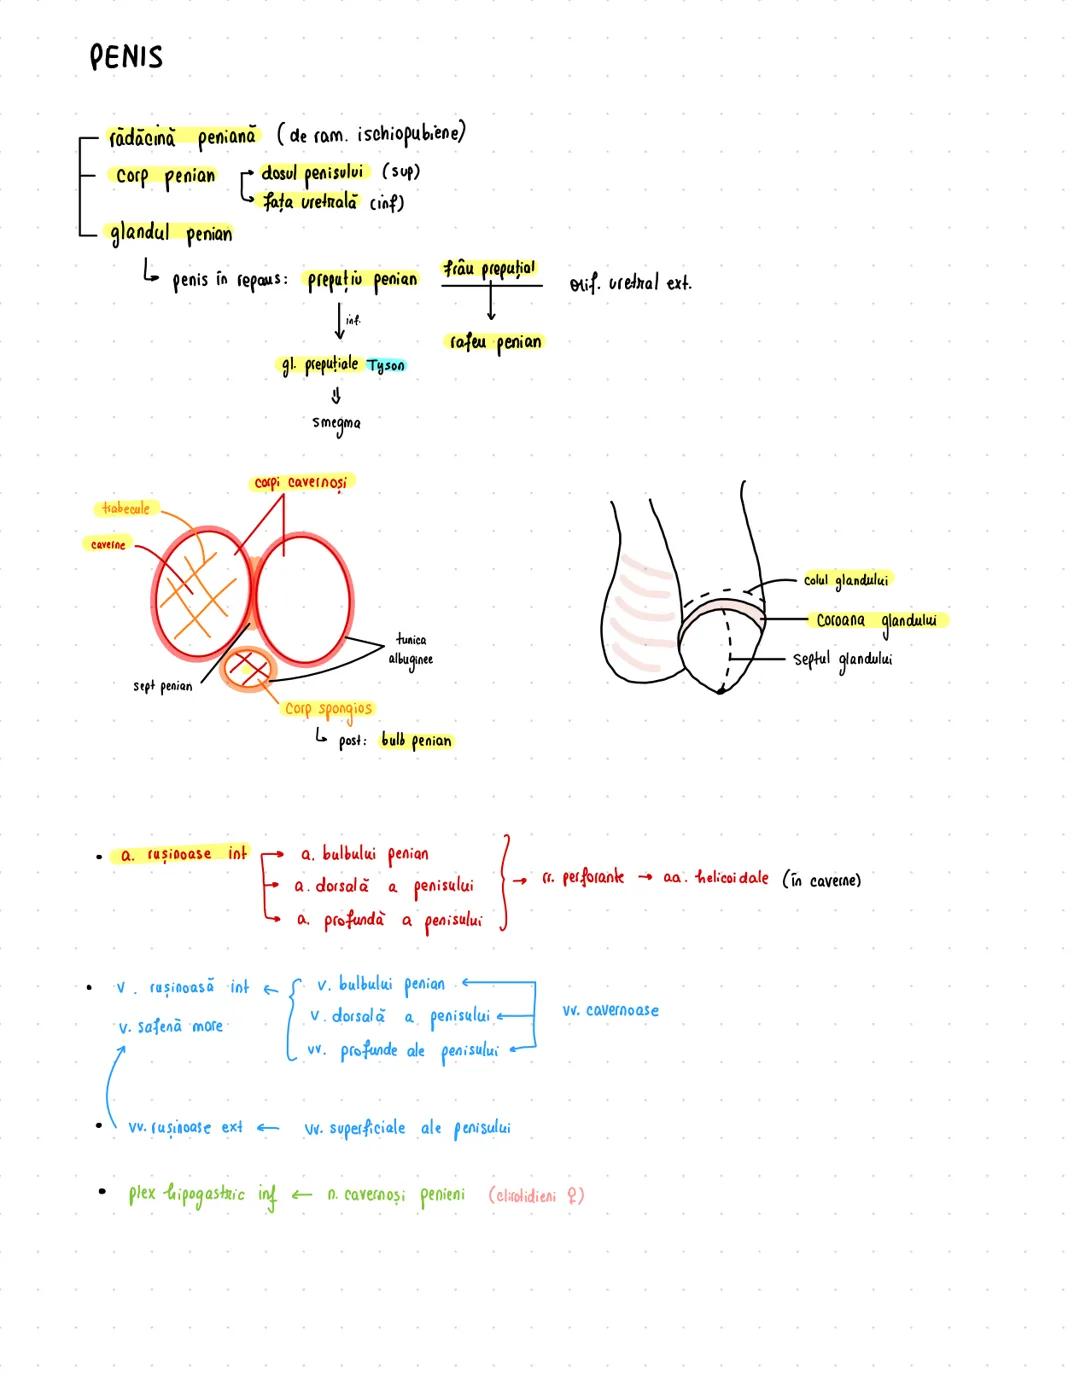 PENIS
rădăcină peniană (de ram. ischiopubiene)
corp penian
dosul penisului (sup)
fața uretrală (inf)
glandul penian
penis în repaus: prepuțiu penian
frâu prepuțial
orif. uretral ext.
inf.
rafeu penian
gl. prepuțiale Tyson
smegma
corpi cavernoși
trabecule
caverne
tunica
albuginee
sept penian
corp spongios
post: bulb penian
colul glandului
coroana glandului
septul glandului
a. rușinoase int
a. bulbului penian
a. dorsală a penisului
a. profundă a penisului
rr. perforante → aa. helicoidale (în caverne)
v. rușinoasă int ←
v. safenă mare
v. bulbului penian
v. dorsală a penisului
vv. profunde ale penisului
vv. cavernoase
vv. rușinoase ext ← vv. superficiale ale penisului
plex hipogastric inf ← n. cavernoși penieni (clirolidieni ♀)